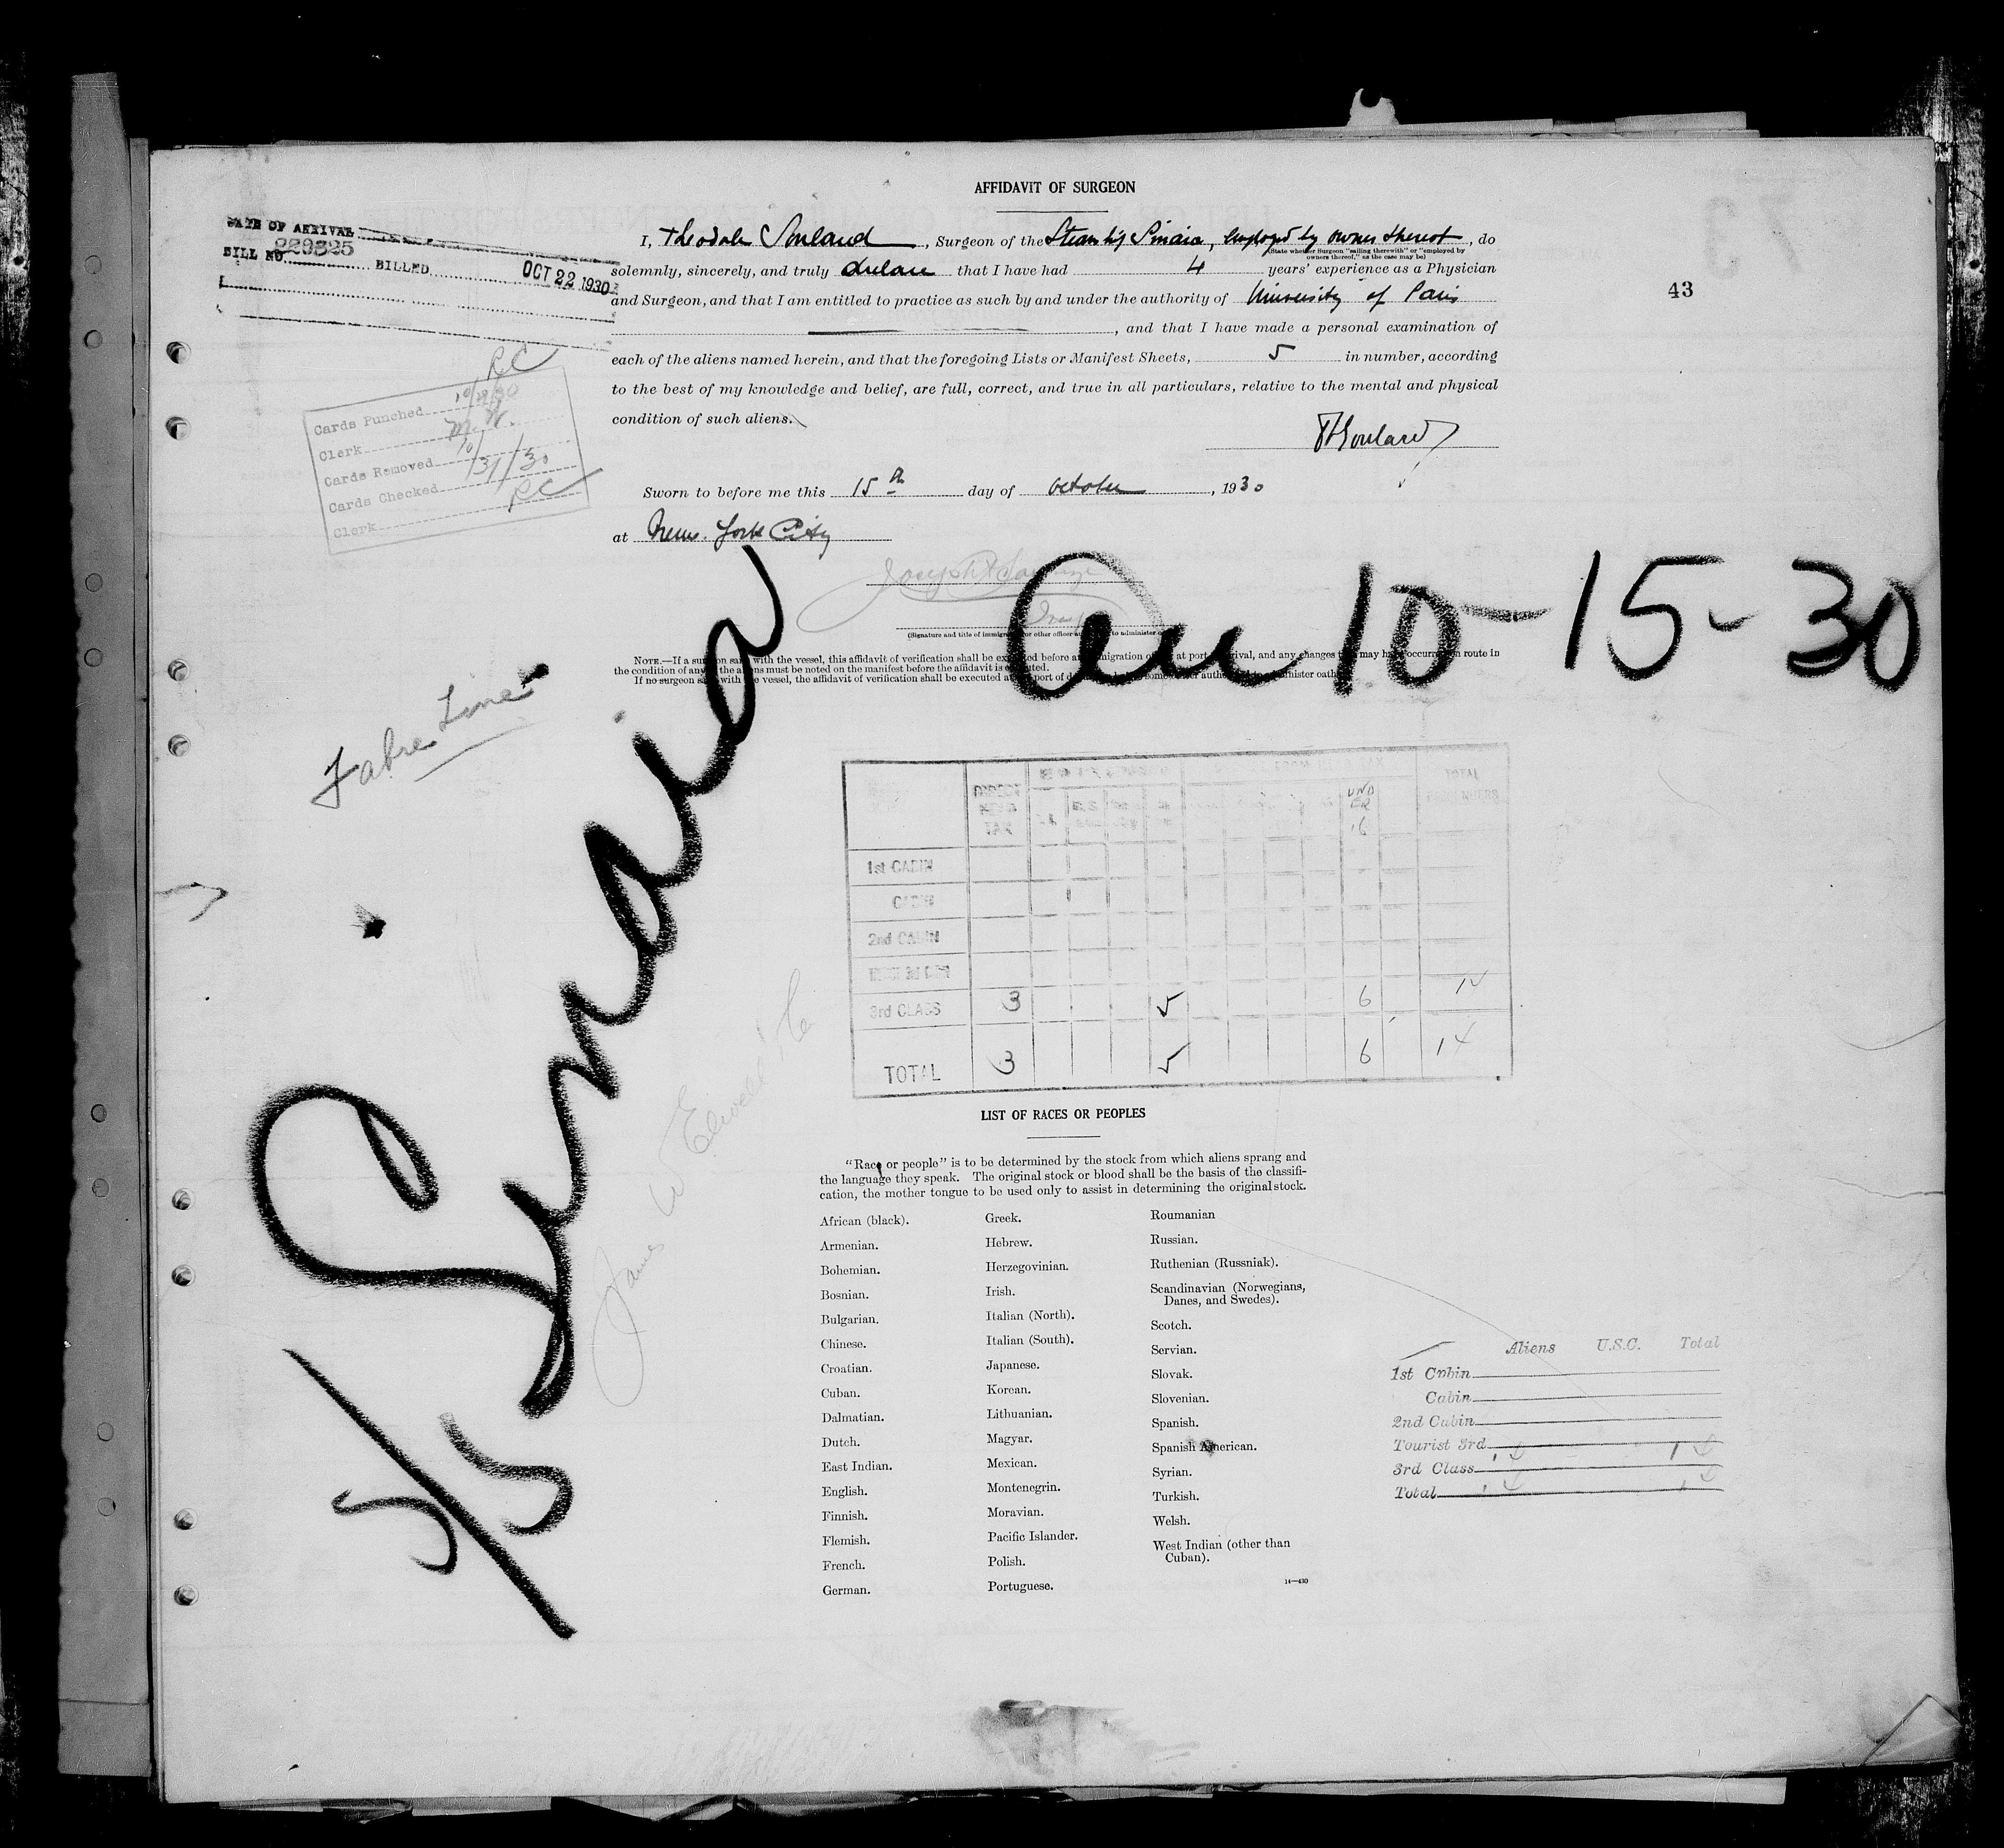 AFFIDAVIT OF SURGEON
DATE OF ARRIVAL
BILL NO. 229825 BILLED OCT 22 1930
43
I, Theodore Soulard, Surgeon of the Steamship Sinaia, employed by owner thereof, do
(State whether Surgeon "sailing therewith" or "employed by
owners thereof," as the case may be)
solemnly, sincerely, and truly declare that I have had 4 years' experience as a Physician
and Surgeon, and that I am entitled to practice as such by and under the authority of University of Paris
, and that I have made a personal examination of
each of the aliens named herein, and that the foregoing Lists or Manifest Sheets, 5 in number, according
to the best of my knowledge and belief, are full, correct, and true in all particulars, relative to the mental and physical
condition of such aliens.
RC
Cards Punched
Clerk
Cards Removed
Cards Checked 10/31/30
Clerk RC
Sworn to before me this 15th day of October, 1930
at New York City
(Signature and title of immigration or other officer
NOTE.—If a surgeon sails with the vessel, this affidavit of verification shall be executed before an immigration officer at port of arrival, and any changes that may have occurred en route in
the condition of any of the aliens must be noted on the manifest before the affidavit is executed.
If no surgeon sails with the vessel, the affidavit of verification shall be executed at the port of
Arr 10-15-30
Fabre Line
S/S Sinaia
James W Elwell & Co
DIRECT HEAD TAX
UNDER 16
TOTAL
1st CABIN
CABIN
2nd CABIN
3rd CLASS 3 5 6 14
TOTAL 3 5 6 14
LIST OF RACES OR PEOPLES
"Race or people" is to be determined by the stock from which aliens sprang and
the language they speak. The original stock or blood shall be the basis of the classifi-
cation, the mother tongue to be used only to assist in determining the original stock.
African (black).
Armenian.
Bohemian.
Bosnian.
Bulgarian.
Chinese.
Croatian.
Cuban.
Dalmatian.
Dutch.
East Indian.
English.
Finnish.
Flemish.
French.
German.
Greek.
Hebrew.
Herzegovinian.
Irish.
Italian (North).
Italian (South).
Japanese.
Korean.
Lithuanian.
Magyar.
Mexican.
Montenegrin.
Moravian.
Pacific Islander.
Polish.
Portuguese.
Roumanian
Russian.
Ruthenian (Russniak).
Scandinavian (Norwegians,
Danes, and Swedes).
Scotch.
Servian.
Slovak.
Slovenian.
Spanish.
Spanish American.
Syrian.
Turkish.
Welsh.
West Indian (other than
Cuban).
14—430
Aliens U.S.C. Total
1st Cabin
Cabin
2nd Cabin
Tourist 3rd
3rd Class 14 14
Total 14 14